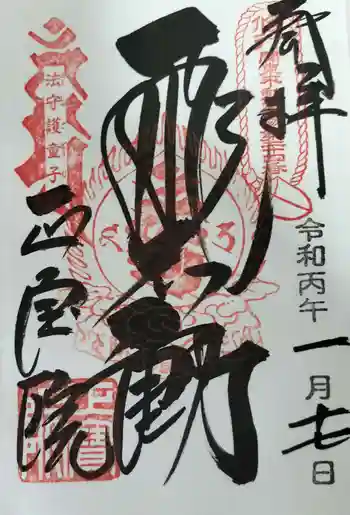 奉拝
令和丙午一月七日
飛不動
法守護童子
正宝院